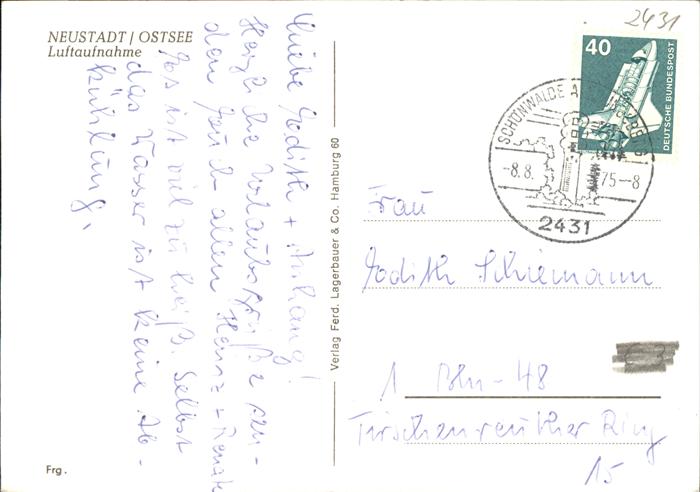 NEUSTADT / OSTSEE
Luftaufnahme
Liebe Edith + Anhang!
Herzliche Urlaubsgrüße sen-
den Euch allen Heinz + Renate
Es ist viel zu heiß. Selbst
das Wasser ist keine Ab-
kühlung.
Frg.
Verlag Ferd. Lagerbauer & Co. Hamburg 60
2431
40
DEUTSCHE BUNDESPOST
SCHÖNWALDE A
-8.8.
75-8
2431
Frau
Edith Schiemann
1 Bln-48
Tirschenreuther Ring
15